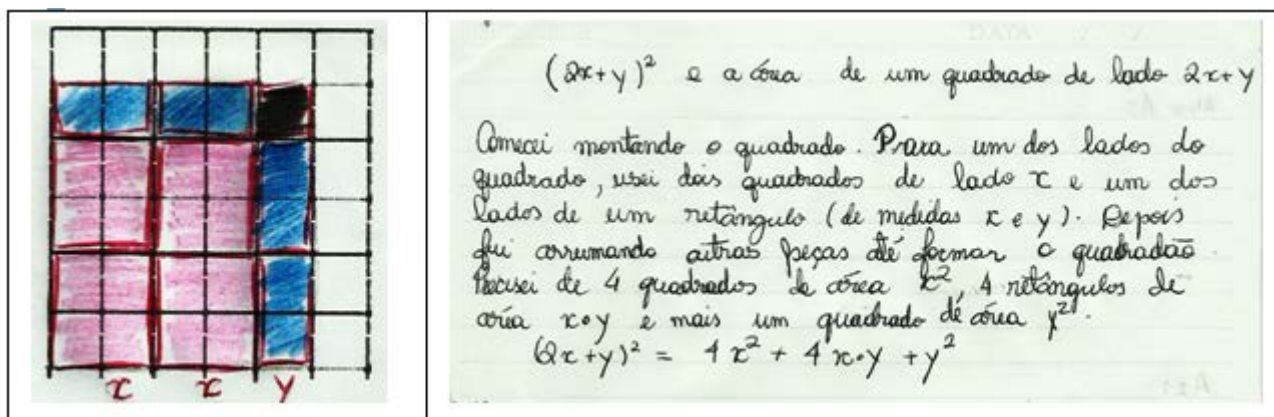 x x y
(2x+y)² e a área de um quadrado de lado 2x+y
Comecei montando o quadrado. Para um dos lados do
quadrado, usei dois quadrados de lado x e um dos
lados de um retângulo (de medidas x e y). Depois
fui arrumando outras peças até formar o quadradão.
Precisei de 4 quadrados de área x², 4 retângulos de
área x•y e mais um quadrado de área y².
(2x+y)² = 4x² + 4x•y + y²